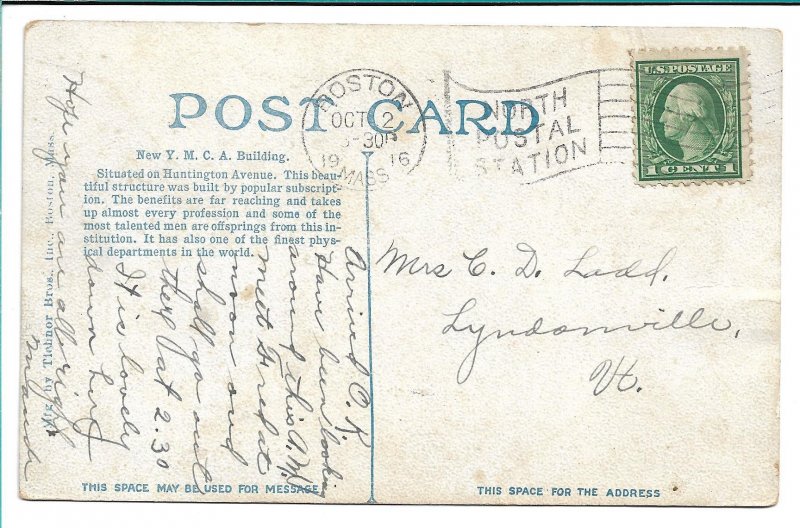 POST CARD
BOSTON
OCT 2
-30P
19 16
MASS
NORTH
POSTAL
STATION
U.S. POSTAGE
1 CENT 1
New Y. M. C. A. Building.
Situated on Huntington Avenue. This beau-
tiful structure was built by popular subscript-
ion. The benefits are far reaching and takes
up almost every profession and some of the
most talented men are offsprings from this in-
stitution. It has also one of the finest phys-
ical departments in the world.
Mfg. by Tichnor Bros., Inc., Boston, Mass.
Arrived O.K
Have been looking
around this A.M.
meet Fred at
noon and
shall go out
there at 2.30
It is lovely
down here
Hope you are all right
Maude
Mrs C. D. Ladd.
Lyndonville,
Vt.
THIS SPACE MAY BE USED FOR MESSAGE
THIS SPACE FOR THE ADDRESS